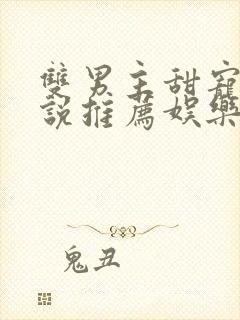 雙男主甜寵
說推薦娛樂
鬼丑